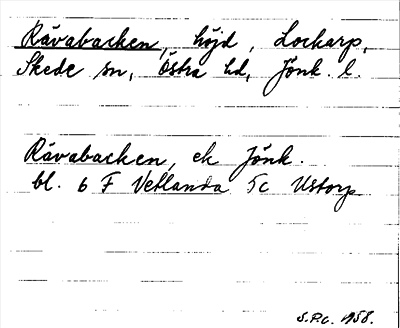 Rävabacken, höjd, Lockarp,
Skede sn, Östra hd, Jönk. l.
Rävabacken, ek Jönk.
bl. 6 F Vetlanda 5c Ustorp
S.P.C. 1958.